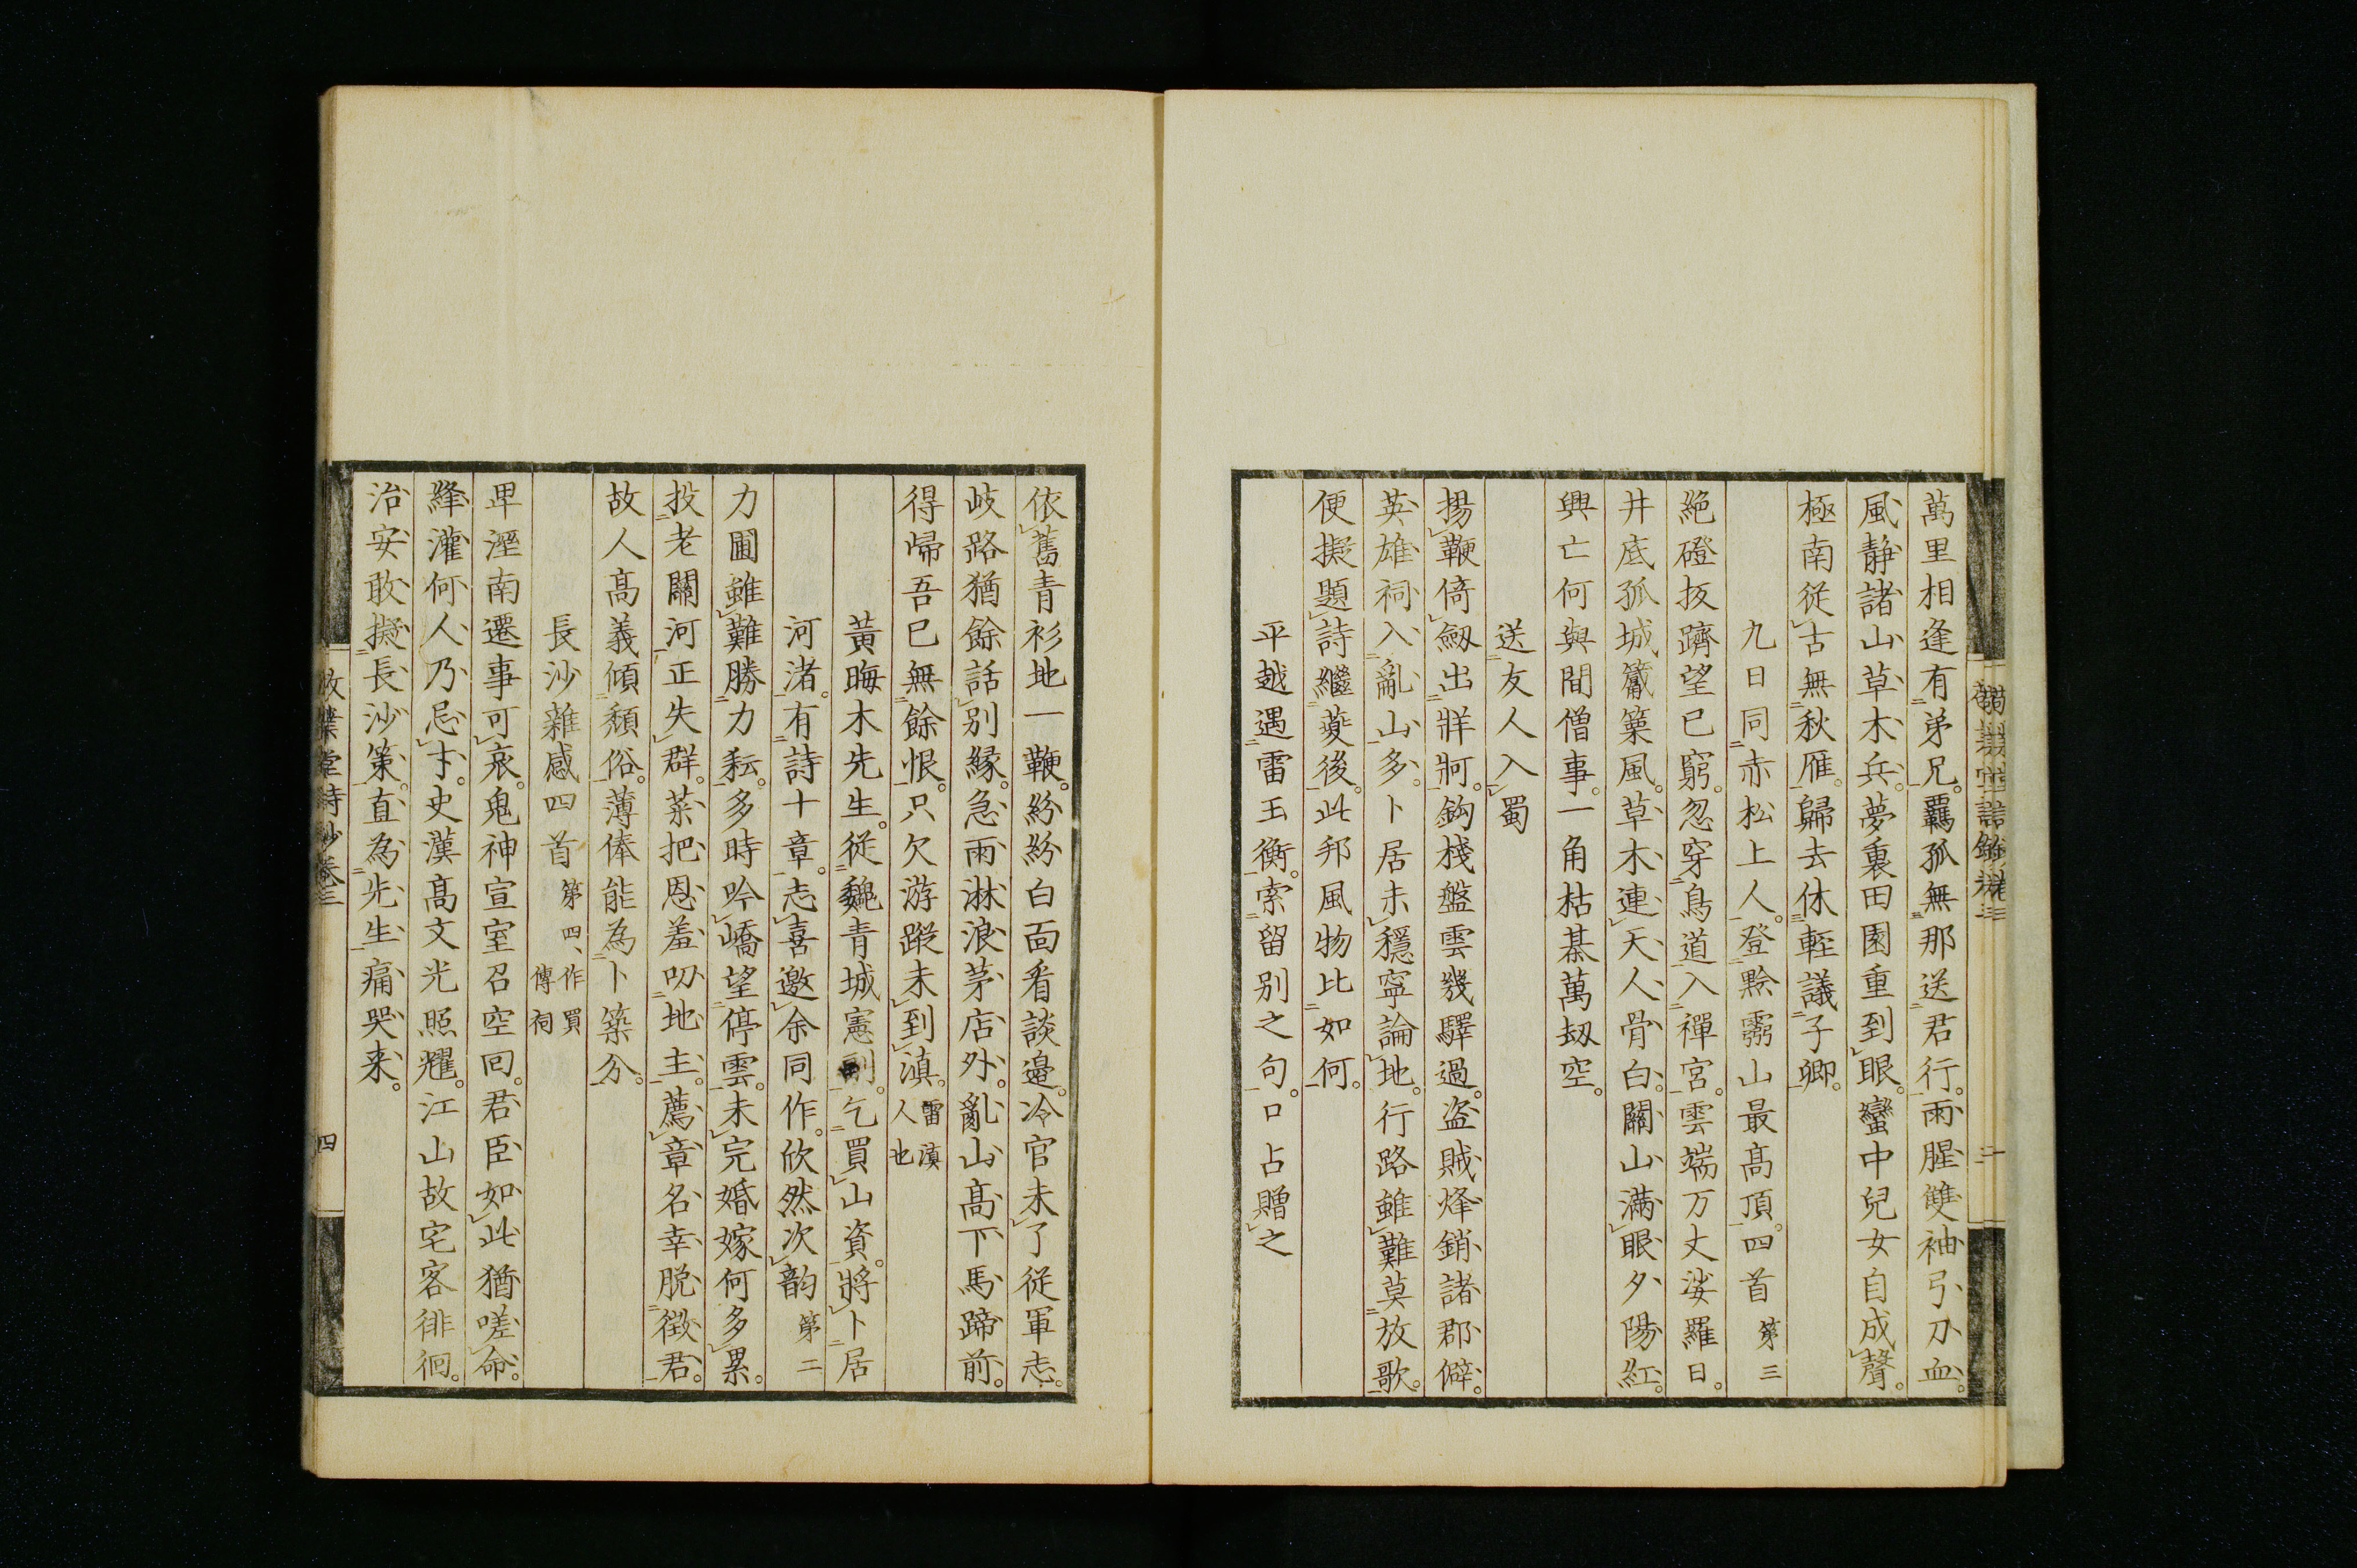 萬里相逢有弟兄。羈孤無那送君行。雨腥雙袖引刀血。
風靜諸山草木兵。夢裏田園重到眼。蠻中兒女自成聲。
極南從古無秋雁。歸去休輕議子卿。
九日同赤松上人。登黔靈山最高頂。四首 第三
絶磴扳躋望已窮。忽穿鳥道入禪宮。雲端万丈娑羅日。
井底孤城觱篥風。草木連天人骨白。關山滿眼夕陽紅。
興亡何與間僧事。一角枯棊萬刼空。
送友人入蜀
揚鞭倚劔出牂牁。鈎棧盤雲幾驛過。盗賊烽銷諸郡僻。
英雄祠入亂山多。卜居未穩寧論地。行路雖難莫放歌。
便擬題詩繼夔後。此邦風物比如何。
平越遇雷玉衡。索留别之句。口占贈之
依舊青衫地一鞭。紛紛白面看談邊。冷官未了從軍志。
岐路猶餘話别緣。急雨淋浪茅店外。亂山高下馬蹄前。
得歸吾已無餘恨。只欠游蹤未到滇。雷滇人也
黃晦木先生。從魏青城憲副。乞買山資。將卜居
河渚。有詩十章。志喜邀余同作。欣然次韵 第二
力圃雖難勝力耘。多時吟嶠望停雲。未完婚嫁何多累。
投老關河正失群。菜把恩羞叨地主。薦章名幸脱徵君。
故人高義傾頽俗。薄俸能為卜築分。
長沙雜感四首 第四、作賈傅祠
卑溼南遷事可哀。鬼神宣室召空回。君臣如此猶嗟命。
絳灌何人乃忌才。史漢高文光照耀。江山故宅客徘徊。
治安敢擬長沙策。直為先生痛哭来。
四